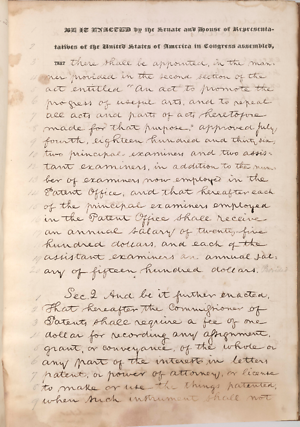 BE IT ENACTED by the Senate and House of Representa-
tatives of the United States of America in Congress assembled,
THAT there shall be appointed, in the man-
ner provided in the second section of the
act entitled "An act to promote the
progress of useful arts, and to repeal
all acts and parts of acts heretofore
made for that purpose," approved July
fourth, eighteen hundred and thirty six,
two principal examiners and two assis-
tant examiners, in addition to the num-
ber of examiners now employed in the
Patent Office, and that hereafter each
of the principal examiners employed
in the Patent Office shall receive
an annual salary of twenty five
hundred dollars, and each of the
assistant examiners an annual sal-
ary of fifteen hundred dollars.
Sec. 2 And be it further enacted,
That hereafter the Commissioner of
Patents shall require a fee of one
dollar for recording any assignment,
grant, or conveyance, of the whole or
any part of the interest in letters
patent, or power of attorney, or license
to make or use the things patented,
when such instrument shall not